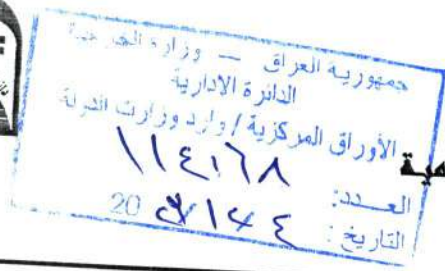 جمهورية العراق — وزارة الخارجية
الدائرة الادارية
الأوراق المركزية / وارد وزارات الدولة
العـــدد: ١١٤١٦٨
التاريخ: 20
مية